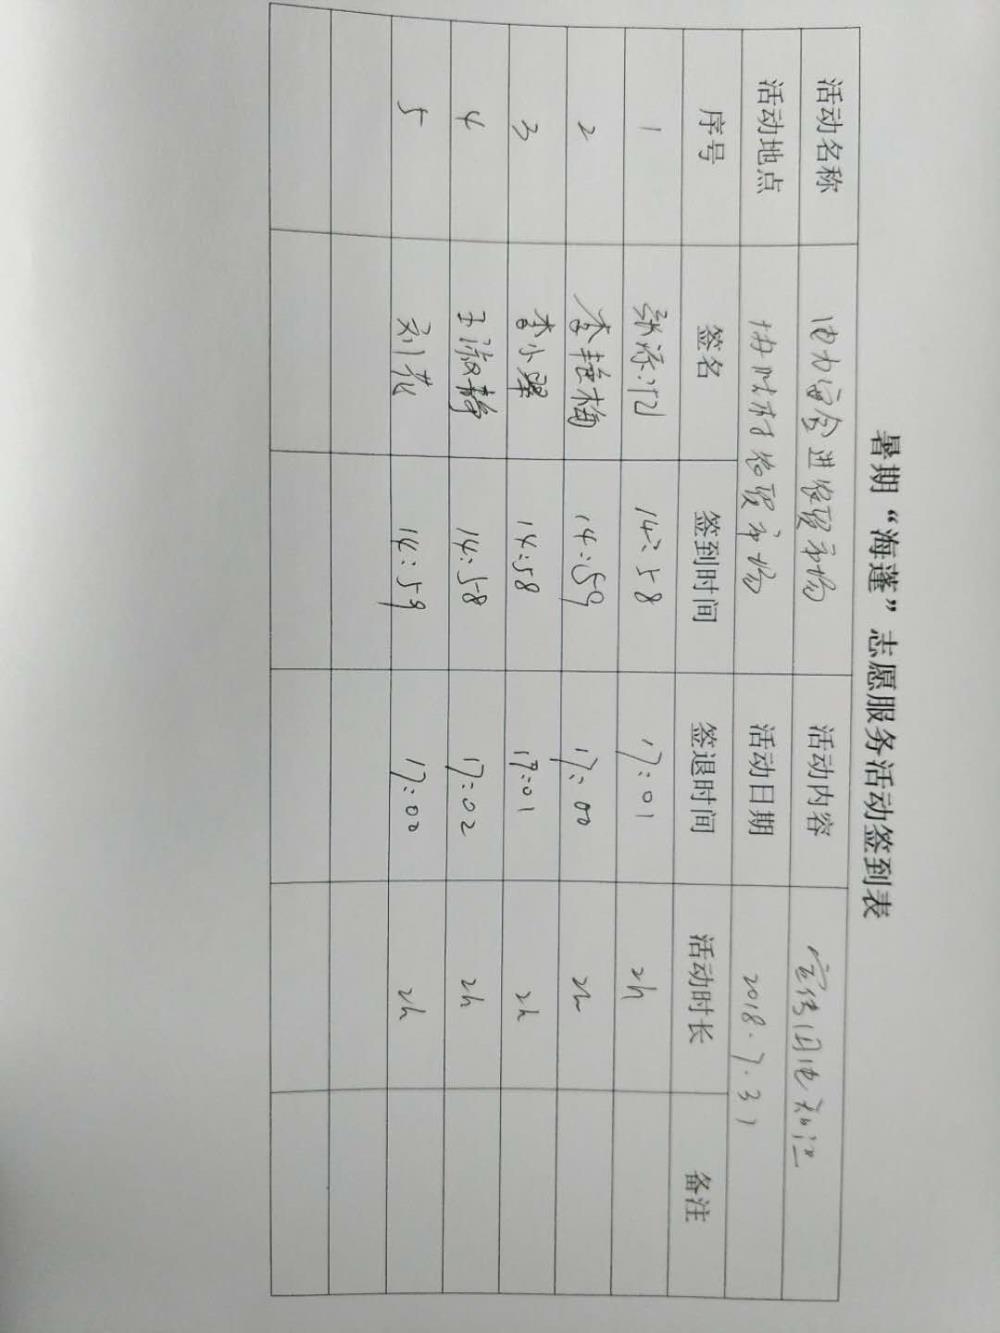 暑期“海蓬”志愿服务活动签到表
活动名称 电力宣全进农贸市场 活动内容 宣传用电知识
活动地点 村农贸市场 活动日期 2018.7.31
序号 签名 签到时间 签退时间 活动时长 备注
1 14:58 17:01 2h
2 李艳梅 14:59 17:00 2h
3 李小翠 14:58 17:01 2h
4 王淑静 14:58 17:02 2h
5 刘花 14:59 17:00 2h